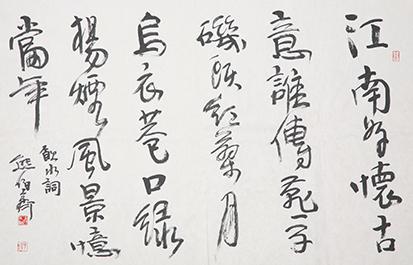 江南好懷古
意誰傳燕子
磯頭紅蓼月
烏衣巷口綠
楊煙風景憶
當年
飲水詞
熊伯齊